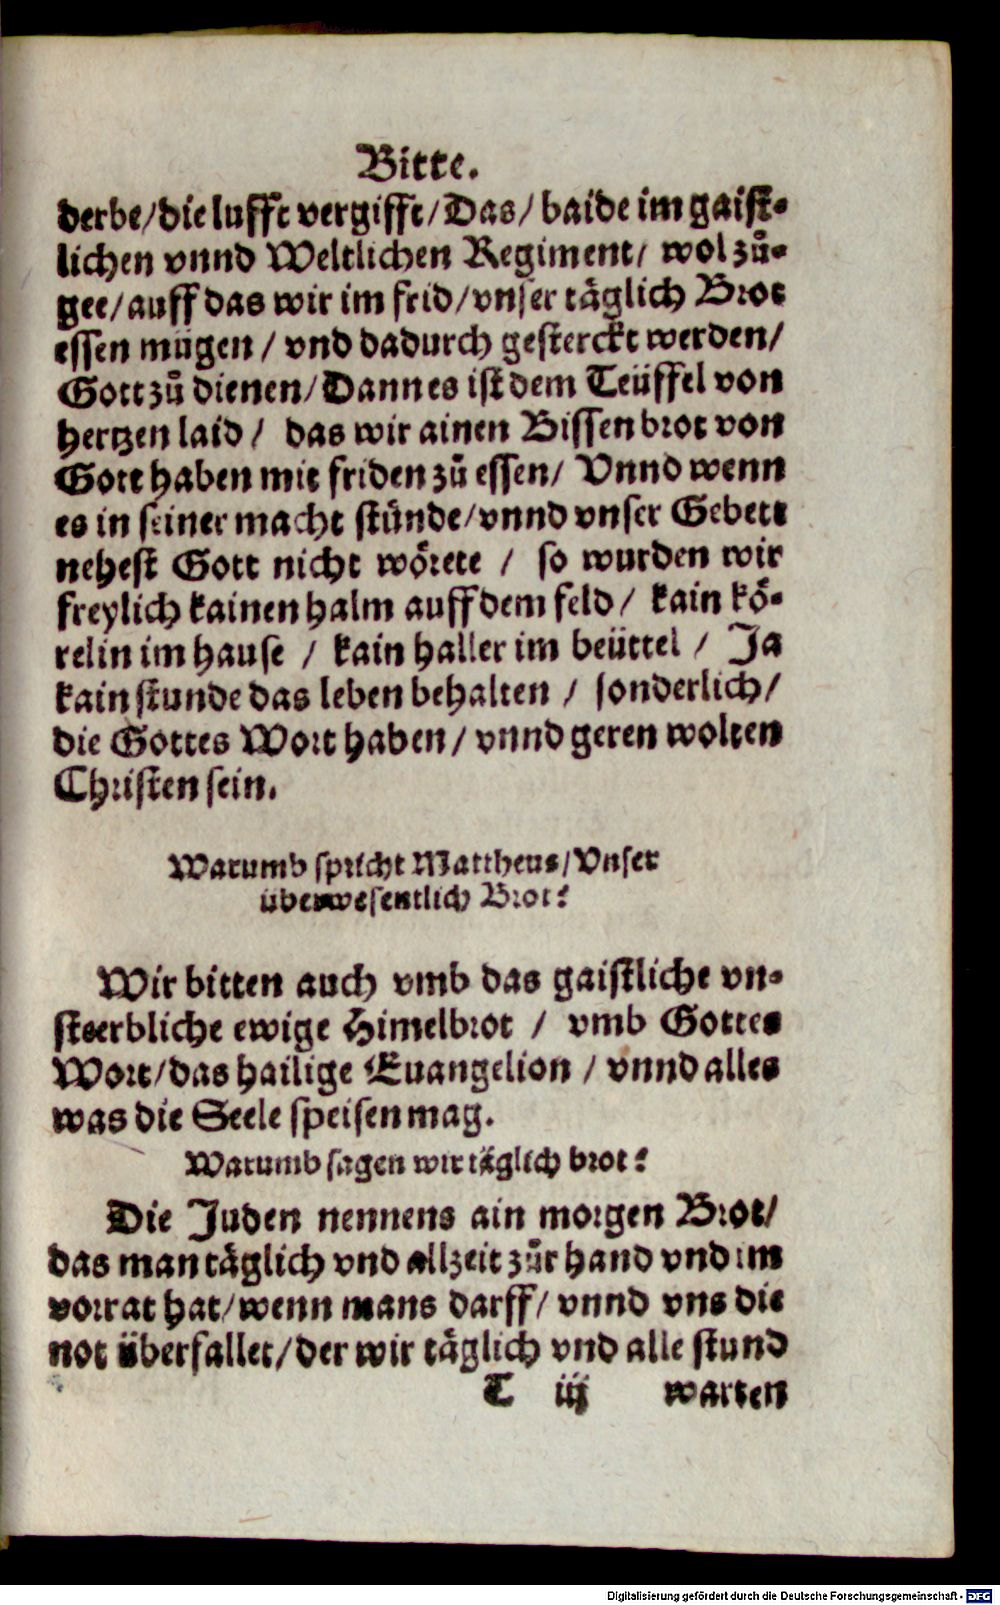 Bitte.
derbe/die lufft vergifft/Das/baide im gaist-
lichen vnnd Weltlichen Regiment/ wol zů-
gee/auff das wir im frid/vnser täglich Brot
essen mügen / vnd dadurch gesterckt werden/
Gott zů dienen/Dann es ist dem Teüffel von
hertzen laid / das wir ainen Bissen brot von
Gott haben mit friden zů essen/ Vnnd wenn
es in seiner macht stünde/vnnd vnser Gebett
nehest Gott nicht wörete / so wurden wir
freylich kainen halm auff dem feld / kain kö-
relin im hause / kain haller im beüttel / Ja
kain stunde das leben behalten / sonderlich/
die Gottes Wort haben / vnnd geren wolten
Christen sein.
Warumb spricht Mattheus/Vnser
überwesentlich Brot?
Wir bitten auch vmb das gaistliche vn-
sterbliche ewige Himelbrot / vmb Gottes
Wort/das hailige Euangelion / vnnd alles
was die Seele speisen mag.
Warumb sagen wir täglich brot?
Die Juden nennens ain morgen Brot/
das man täglich vnd allzeit zůr hand vnd im
vorrat hat/wenn mans darff/ vnnd vns die
not überfallet/der wir täglich vnd alle stund
T iij warten
Digitalisierung gefördert durch die Deutsche Forschungsgemeinschaft - DFG